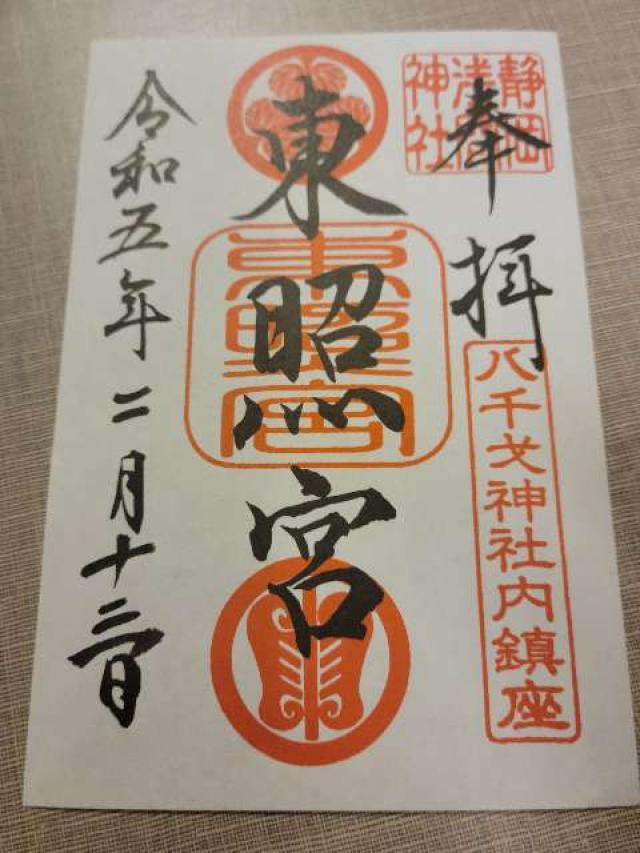 奉拝
静岡
浅間
神社
八千戈神社内鎮座
東照宮
東照宮
令和五年二月十三日